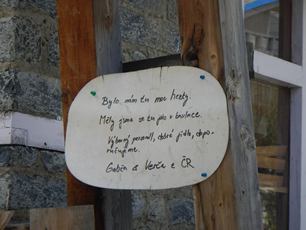 Bylo nám tu moc hezky.
Měly jsme se tu jako v bavlnce.
Výborný personál, dobré jídlo, dopo-
ručujeme.
Gabča a Verča z ČR